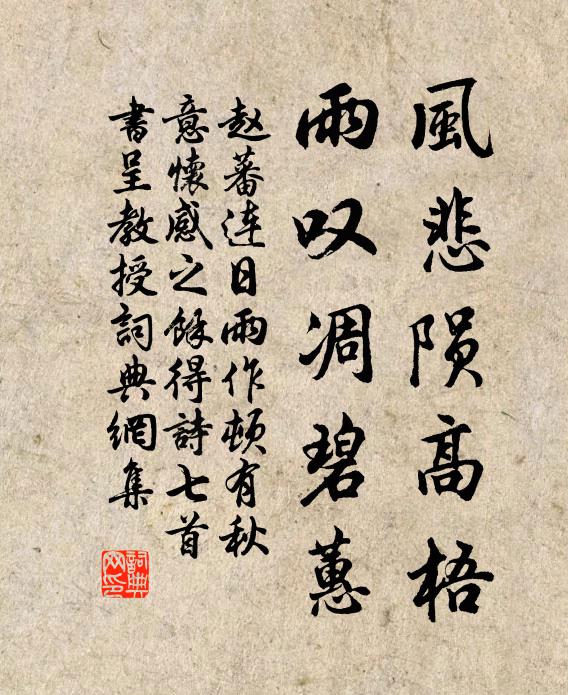 風悲陨高梧
雨叹凋碧蕙
赵蕃连日雨作顿有秋
意懷感之餘得詩七首
書呈教授詞典網集
詞典网印